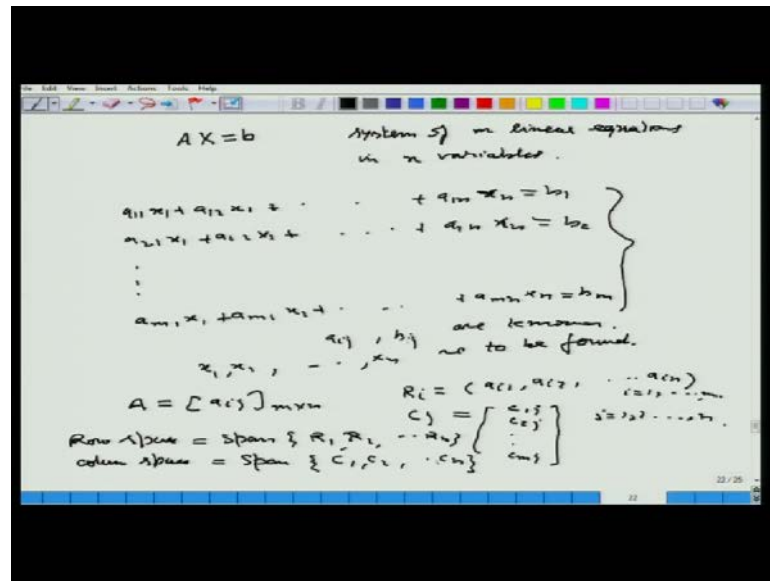 Edit View Insert Actions Tools Help
AX = b system of m linear equations
in n variables.
a11 x1 + a12 x2 + . . + a1n xn = b1
a21 x1 + a22 x2 + . . . . + a2n xn = b2
:
:
am1 x1 + am2 x2 + . . . + amn xn = bm
aij , bij are known.
x1, x2, - - . , xn are to be found.
A = [aij] m×n
Ri = (ai1, ai2, . . . ain) i=1, . . . m.
Cj = [c1j c2j . . cmj] j=1,2, . . . . , n.
Row space = Span { R1, R2, . . Rn}
column space = Span { C1, C2, . . Cn}
22 / 25
22